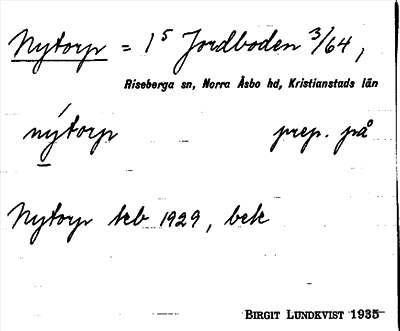 Nytorp = 1⁵ Jordboden 3/64,
Riseberga sn, Norra Åsbo hd, Kristianstads län
nýtorp prep. på
Nytorp tcb 1929, bek
BIRGIT LUNDKVIST 1935